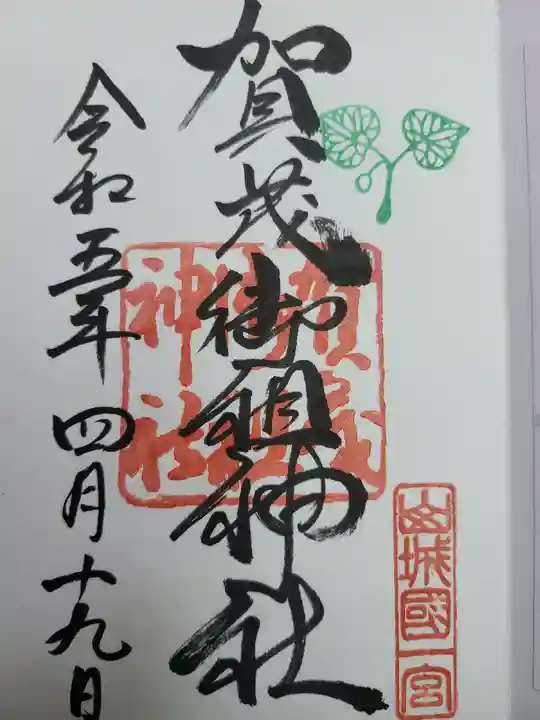 賀茂御祖神社
令和五年四月十九日
山城國一宮
賀茂御祖神社